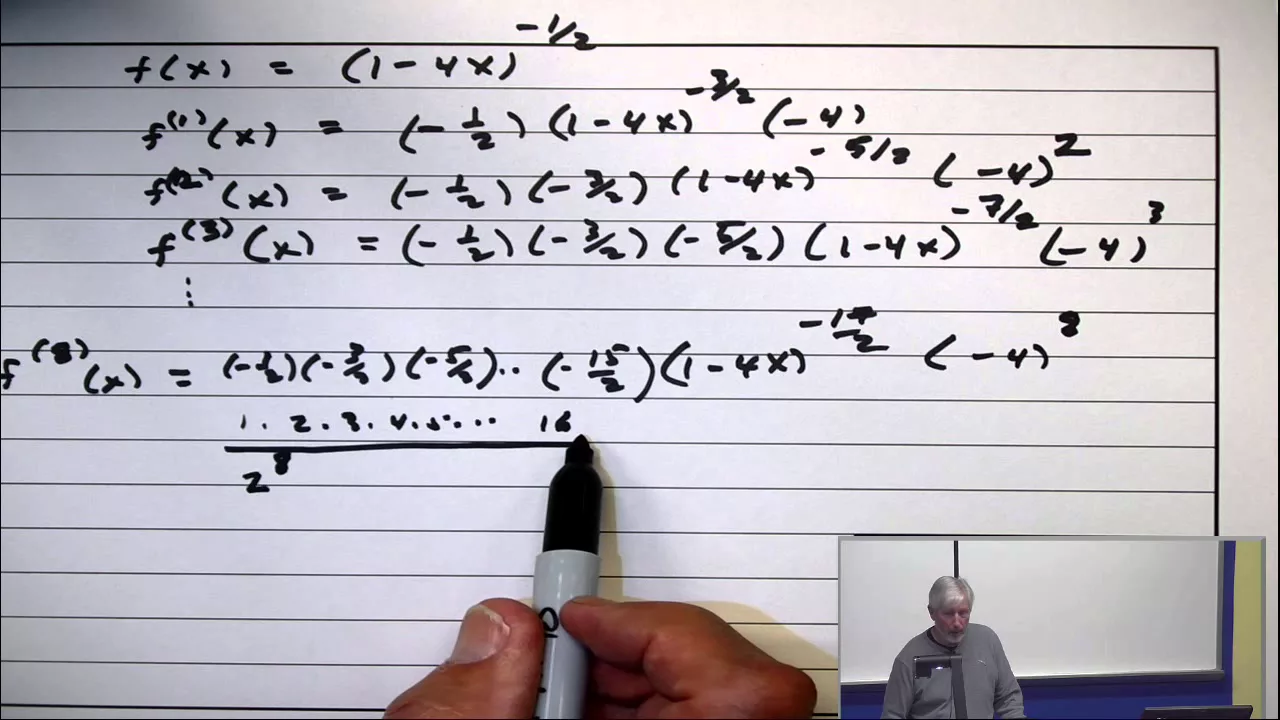 f(x) = (1-4x)^{-1/2}
f^{(1)}(x) = (-1/2)(1-4x)^{-3/2}(-4)
f^{(2)}(x) = (-1/2)(-3/2)(1-4x)^{-5/2}(-4)^2
f^{(3)}(x) = (-1/2)(-3/2)(-5/2)(1-4x)^{-7/2}(-4)^3
⋮
f^{(8)}(x) = (-1/2)(-3/2)(-5/2)··(-15/2)(1-4x)^{-17/2}(-4)^8
1·2·3·4·5··· 16
2^8